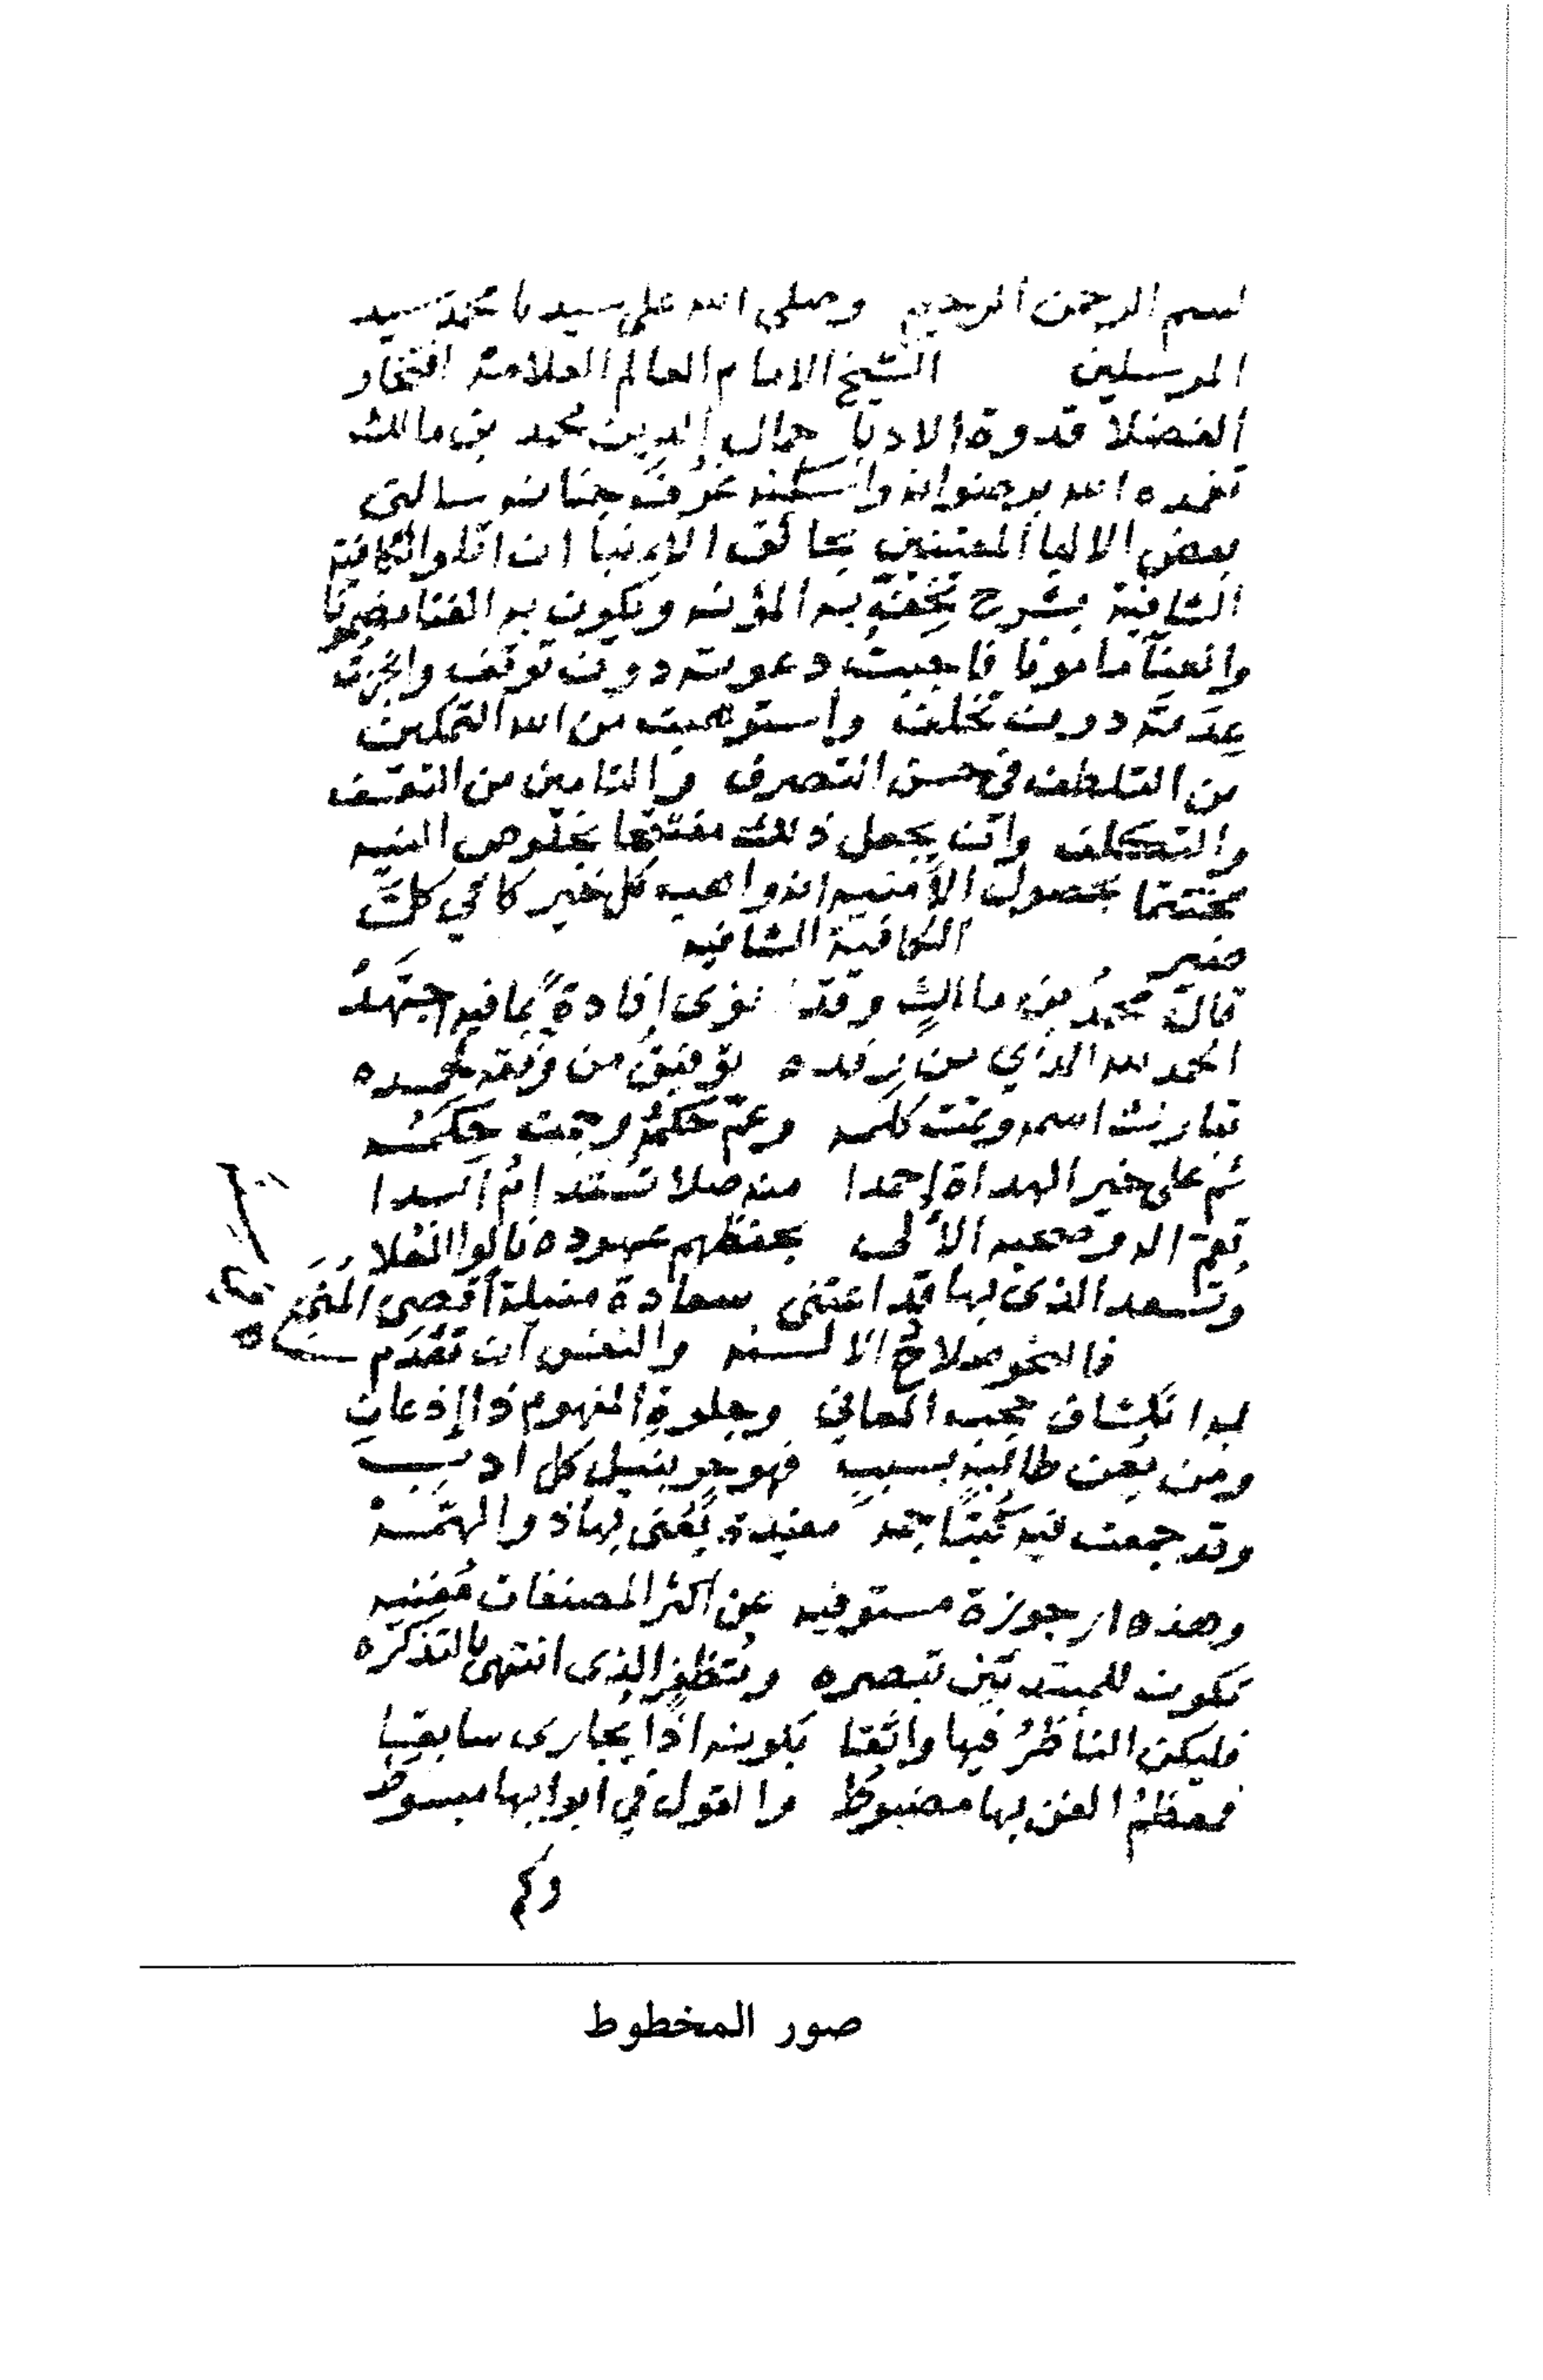 بسم الرحمن الرحيم وصلى الله على سيدنا محمد سيد
المرسلين الشيخ الامام العالم العلامة افتخار
الفضلا قدوة الادبا جمال الدين محمد بن مالك
تغمده الله برضوانه واسكنه غرف جنانه سالنى
بعض الالبا المعتنين بحائق الانبا ان اتلو الكافية
الشافية بشرح تخف به المؤنه ويكون به الغنا مضمونا
والعنا مامونا فاجبت دعوته دون توقف وانجزت
عدته دون تخلف واستوهبت من الله التمكين
من التلطف فى حسن التصرف والتامين من التعسف
والتكلف وان يجعل ذلك مفتتحا بخلوص النيه
مختتما بحصول الأمنيه انه واهب كل خير كافي كل
ضير الكافية الشافيه
قال محمدُ بن مالكٍ وقد نوى إفادةً بما فيه اجتهدْ
الحمد لله الذي من رفده توفيقُ من وفقه لحمده
تبارك اسمه وتمت كلمه وعمّ حكمهُ وجمت حكمُه
ثم على خير الهداة احمدا منه صلاة تستدامُ ابدا
تعم اله وصحبه الأُلى بحفظهم عهوده نالوا العُلا
وتسعد الذى بها قد اعتنى سعادة منيلة أقصى المُنَى
فالنحو صلاحُ الالسنه والنفس ان تعدم سناه
به انكشاف حجب المعانى وجلوة المفهوم ذا إذعان
ومن يعن طالبه بسبب فهو حر بنيل كل ادب
وقد جمعت فيه كُتبًا جمه مفيدة يُعنى بها ذو الهمّه
وهذه ارجوزة مستوفيه عن اكثر المصنفات مُغنيه
تكون للمبتدئين تبصره وتُظفر الذى انتهى بالتذكره
فليكن الناظرُ فيها واثقا بكونه اذا يجارى سابقا
فمعظمُ الفن بها مضبوطُ والقول في ابوابها مبسوطُ
وكم
صور المخطوط